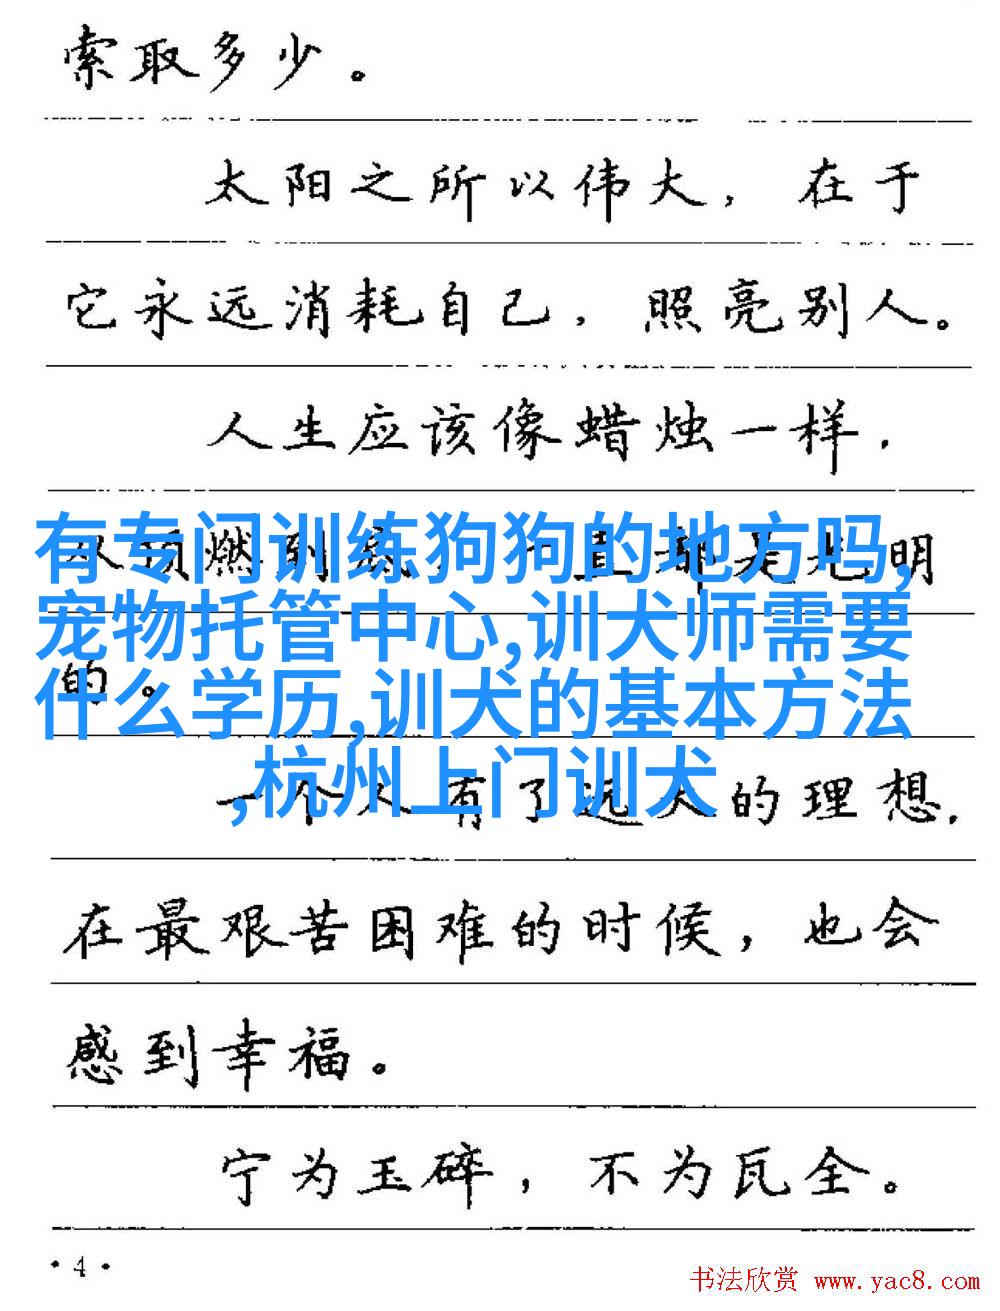 索取多少。
太阳之所以伟大，在于
它永远消耗自己，照亮别人。
人生应该像蜡烛一样，
从顶燃到底，一直都是光明
有专门训练狗狗的地方吗,
宠物托管中心,训犬师需要
的。
什么学历,训犬的基本方法
,杭州上门训犬
一个人有了远大的理想，
在最艰苦困难的时候，也会
感到幸福。
宁为玉碎，不为瓦全。
·4·
书法欣赏 www.yac8.com